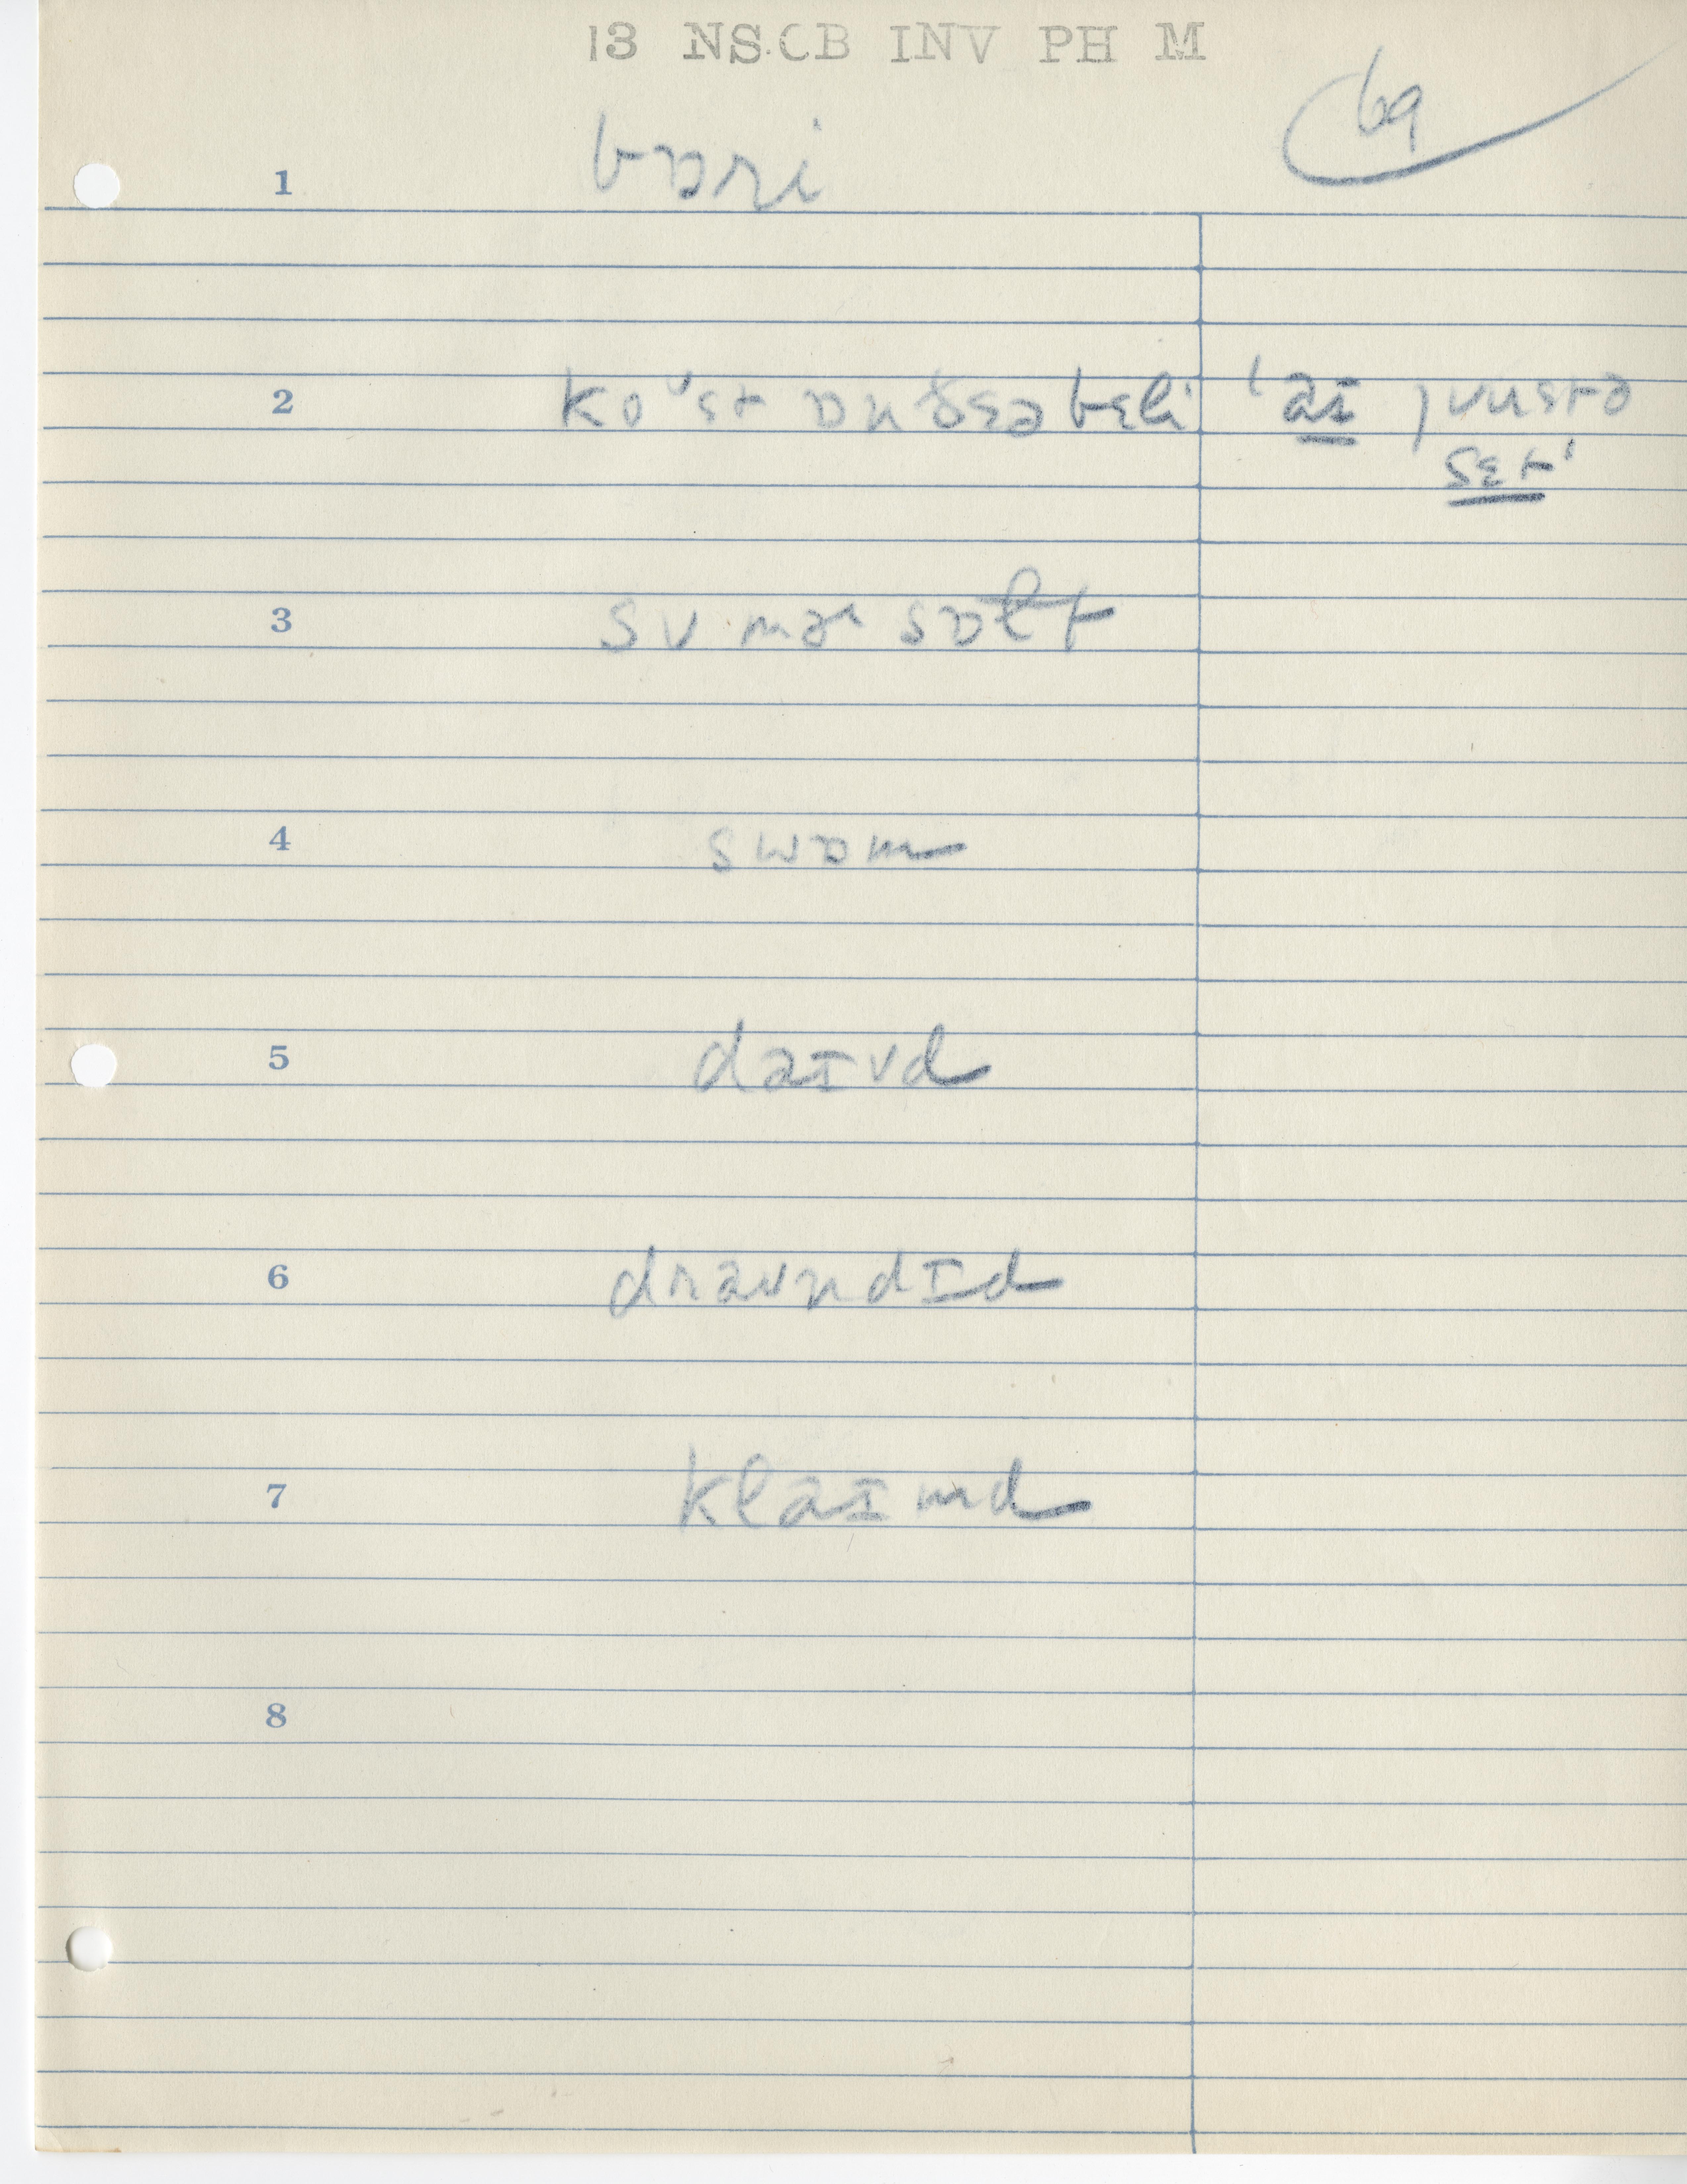 13 NS.CB INV PH M
69
1 bɒri
2 koᶸst ɒn ðɛə bɛli 'aɪ justə
sɛt'
3 sʌmɚsɒlt
4 swɒm
5 daɪvd
6 draʊndɪd
7 klaɪmd
8